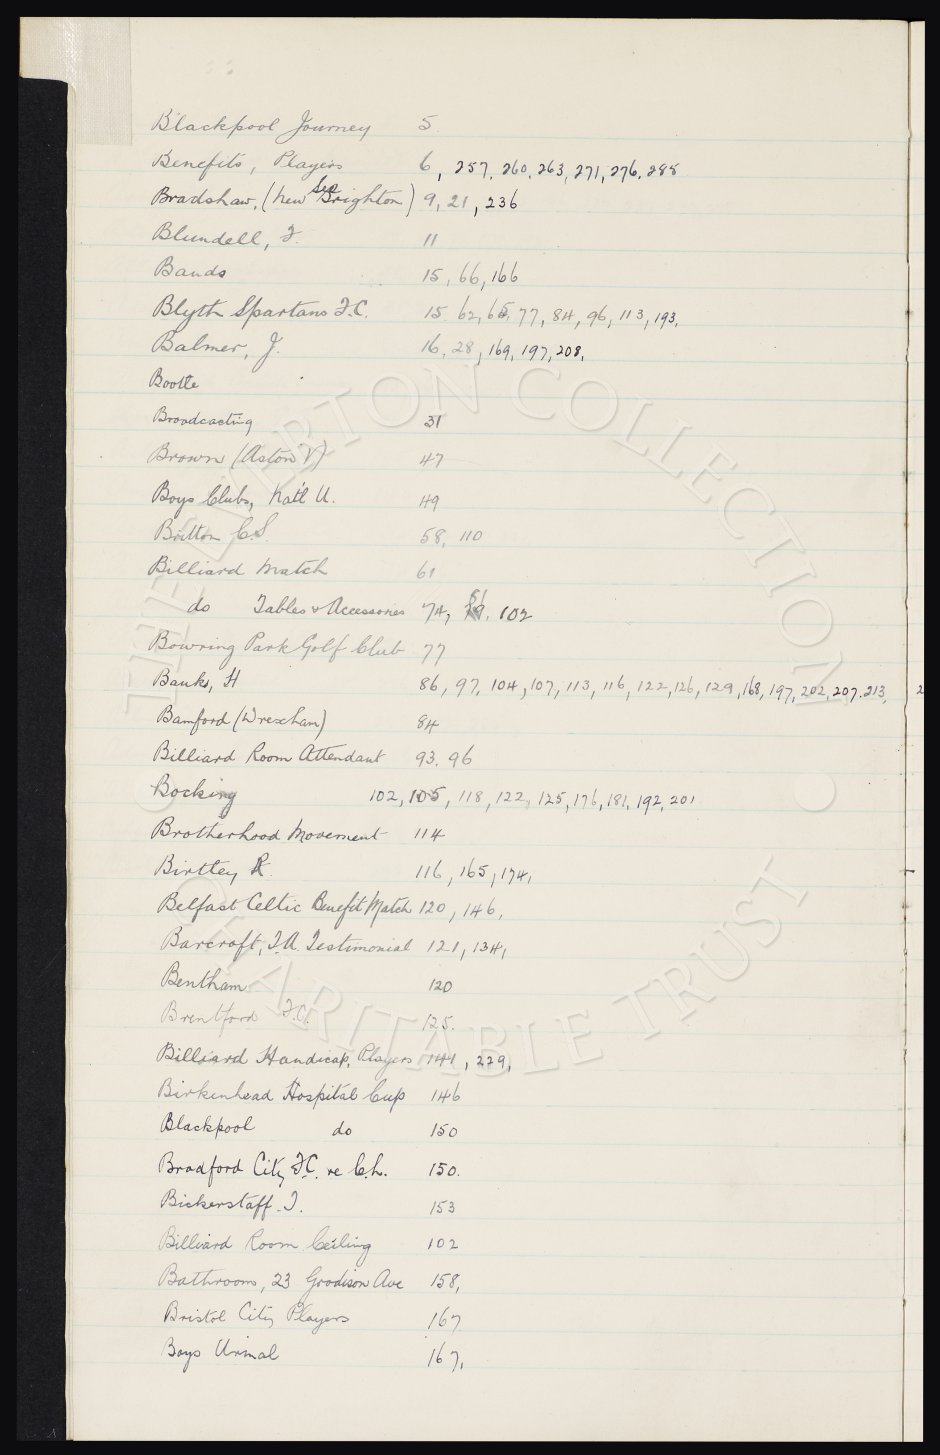 Blackpool Journey 5.
Benefits, Players 6, 257, 260, 263, 271, 276, 288
Bradshaw, (New Brighton) 9, 21, 236
Blundell, J. 11
Bands 15, 66, 166
Blyth Spartans F.C. 15. 62, 65, 77, 84, 96, 113, 193,
Balmer, J. 16, 28, 169, 197, 208,
Bootle
Broadcasting 31
Brown (Aston V) 47
Boys Clubs, Nat'l U. 49
Britton C.S. 58, 110
Billiard Match 61
do Tables & Accessories 74, 81, 102
Bowring Park Golf Club 77
Banks, H 86, 97, 104, 107, 113, 116, 122, 126, 129, 168, 197, 202, 207, 213, 2
Bamford (Wrexham) 84
Billiard Room Attendant 93. 96
Bocking 102, 105, 118, 122, 125, 176, 181, 192, 201
Brotherhood Movement 114
Birtley R. 116, 165, 174,
Belfast Celtic Benefit Match 120, 146,
Barcroft, J.A. Testimonial 121, 134,
Bentham 120
Brentford F.C. 125.
Billiard Handicap, Players 144, 229,
Birkenhead Hospital Cup 146
Blackpool do 150
Bradford City F.C. re C.h. 150.
Bickerstaff. J. 153
Billiard Room Ceiling 102
Bathroom, 23 Goodison Ave 158,
Bristol City Players 167
Boys Urinal 167,
THE EVERTON COLLECTION
CHARITABLE TRUST